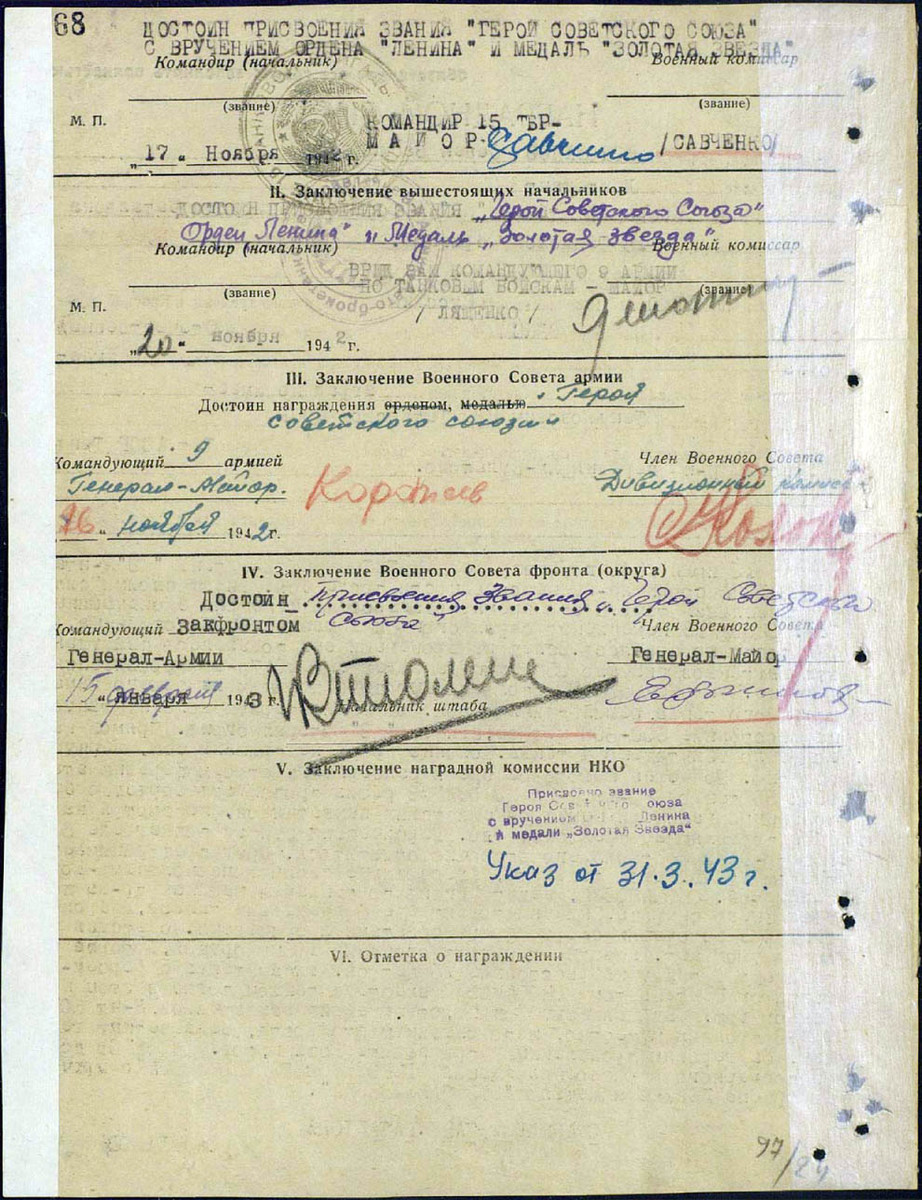 68
ДОСТОИН ПРИСВОЕНИЯ ЗВАНИЯ "ГЕРОЙ СОВЕТСКОГО СОЮЗА"
С ВРУЧЕНИЕМ ОРДЕНА "ЛЕНИНА" И МЕДАЛЬ "ЗОЛОТАЯ ЗВЕЗДА"
Командир (начальник) Военный комиссар
(звание) (звание)
М. П. КОМАНДИР 15 ТБР-
МАЙОР Савченко /САВЧЕНКО/
„17“ Ноября 1942 г.
II. Заключение вышестоящих начальников
ДОСТОИН ПРИСВОЕНИЯ ЗВАНИЯ „Герой Советского Союза"
Орден Ленина" и Медаль „Золотая звезда"
Командир (начальник) Военный комиссар
ВРИД ЗАМ КОМАНДУЮЩЕГО 9 АРМИИ
ПО ТАНКОВЫМ ВОЙСКАМ - МАЙОР
(звание) (звание)
М. П. /ЛЯЩЕНКО/
„20“ ноября 1942 г.
III. Заключение Военного Совета армии
Достоин награждения орденом, медалью „Герой
Советского союза"
Командующий 9 армией Член Военного Совета
Генерал-Майор. Дивизионный комисс
26 ноября 1942 г.
IV. Заключение Военного Совета фронта (округа)
Достоин присвоения звания „Герой Советского
Союза"
Командующий Закфронтом Член Военного Совета
Генерал-Армии Генерал-Майор
15 „января февраля 1943 г.
Начальник штаба
V. Заключение наградной комиссии НКО
Присвоено звание
Героя Советского Союза
с вручением Ленина
и медали „Золотая Звезда"
Указ от 31.3.43 г.
VI. Отметка о награждении
97/24